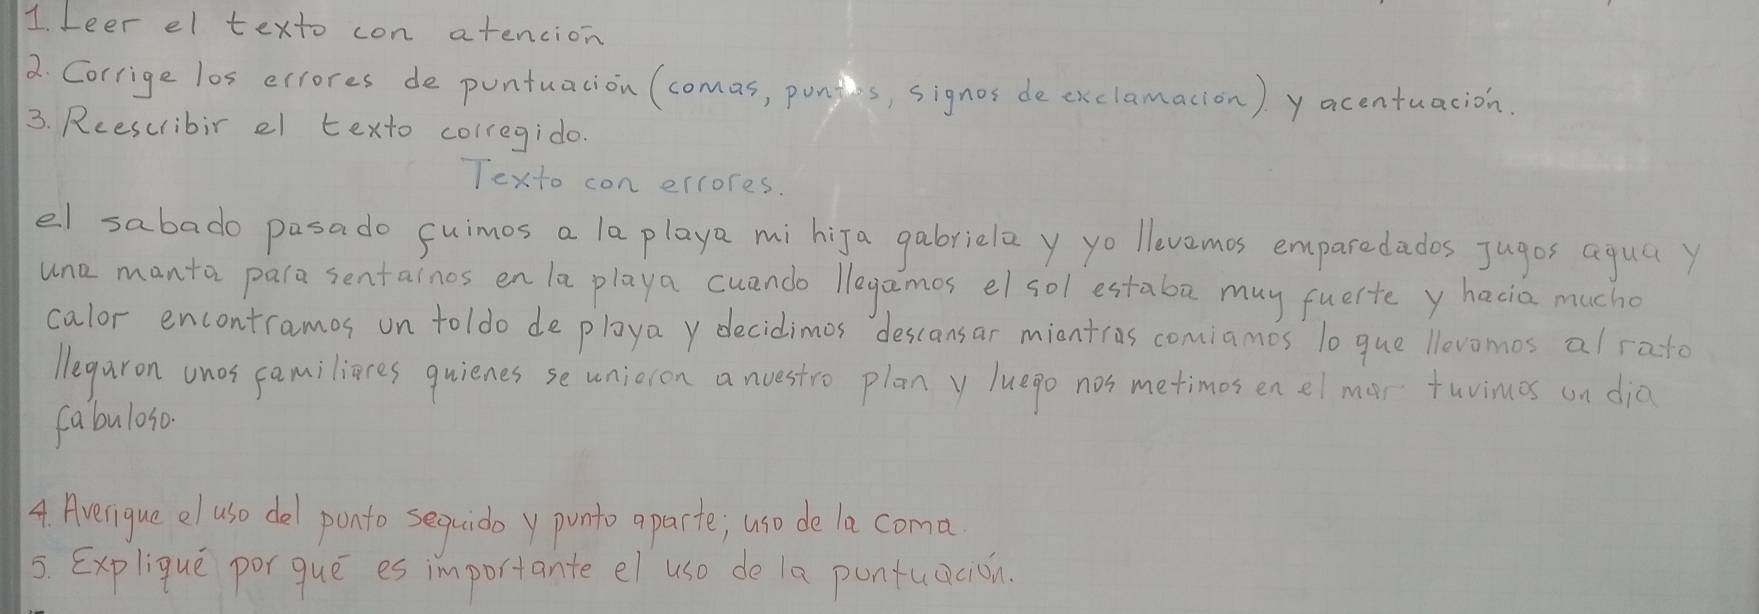 1. Leer el texto con atención
2. Corrige los errores de puntuación (comas, puntos, signos de exclamación) y acentuación.
3. Reescribir el texto corregido.
Texto con errores.
el sabado pasado fuimos a la playa mi hija gabriela y yo llevamos emparedados jugos agua y
una manta para sentarnos en la playa cuando llegamos el sol estaba muy fuerte y hacia mucho
calor encontramos un toldo de playa y decidimos descansar mientras comiamos lo que llevamos al rato
llegaron unos familiares quienes se unieron a nuestro plan y luego nos metimos en el mar tuvimos un dia
fabuloso.
4. Averigue el uso del punto seguido y punto aparte; uso de la coma.
5. Expliqué por qué es importante el uso de la puntuación.